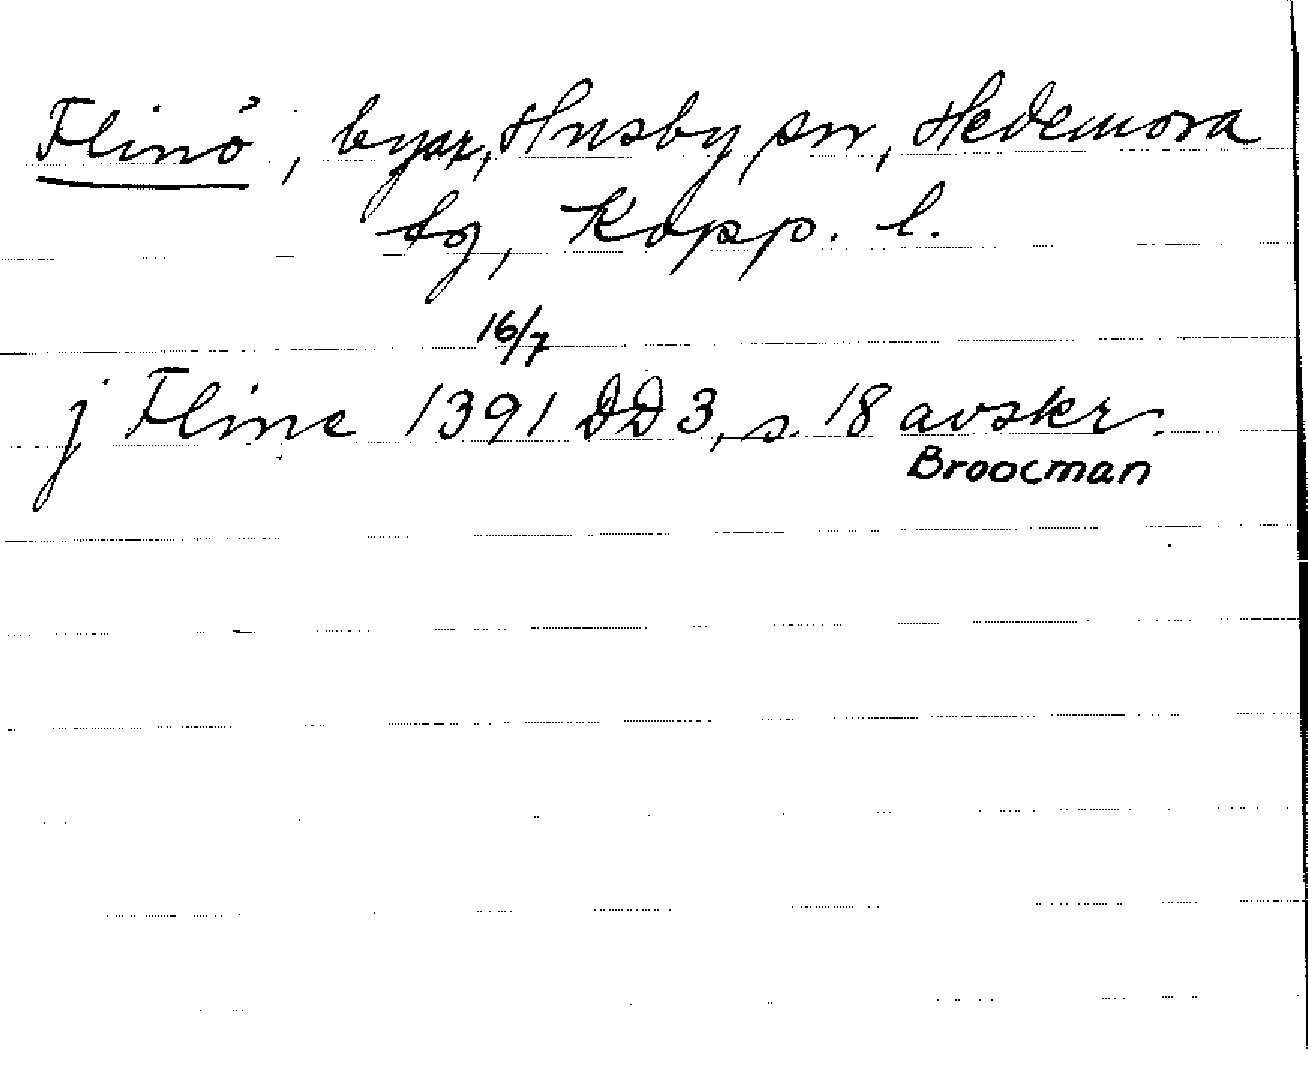 Flinö, byar, Husby sn, Hedemora
tg, Kopp. l.
16/7
j Fline 1391 DD 3, s. 18 avskr.
Broocman